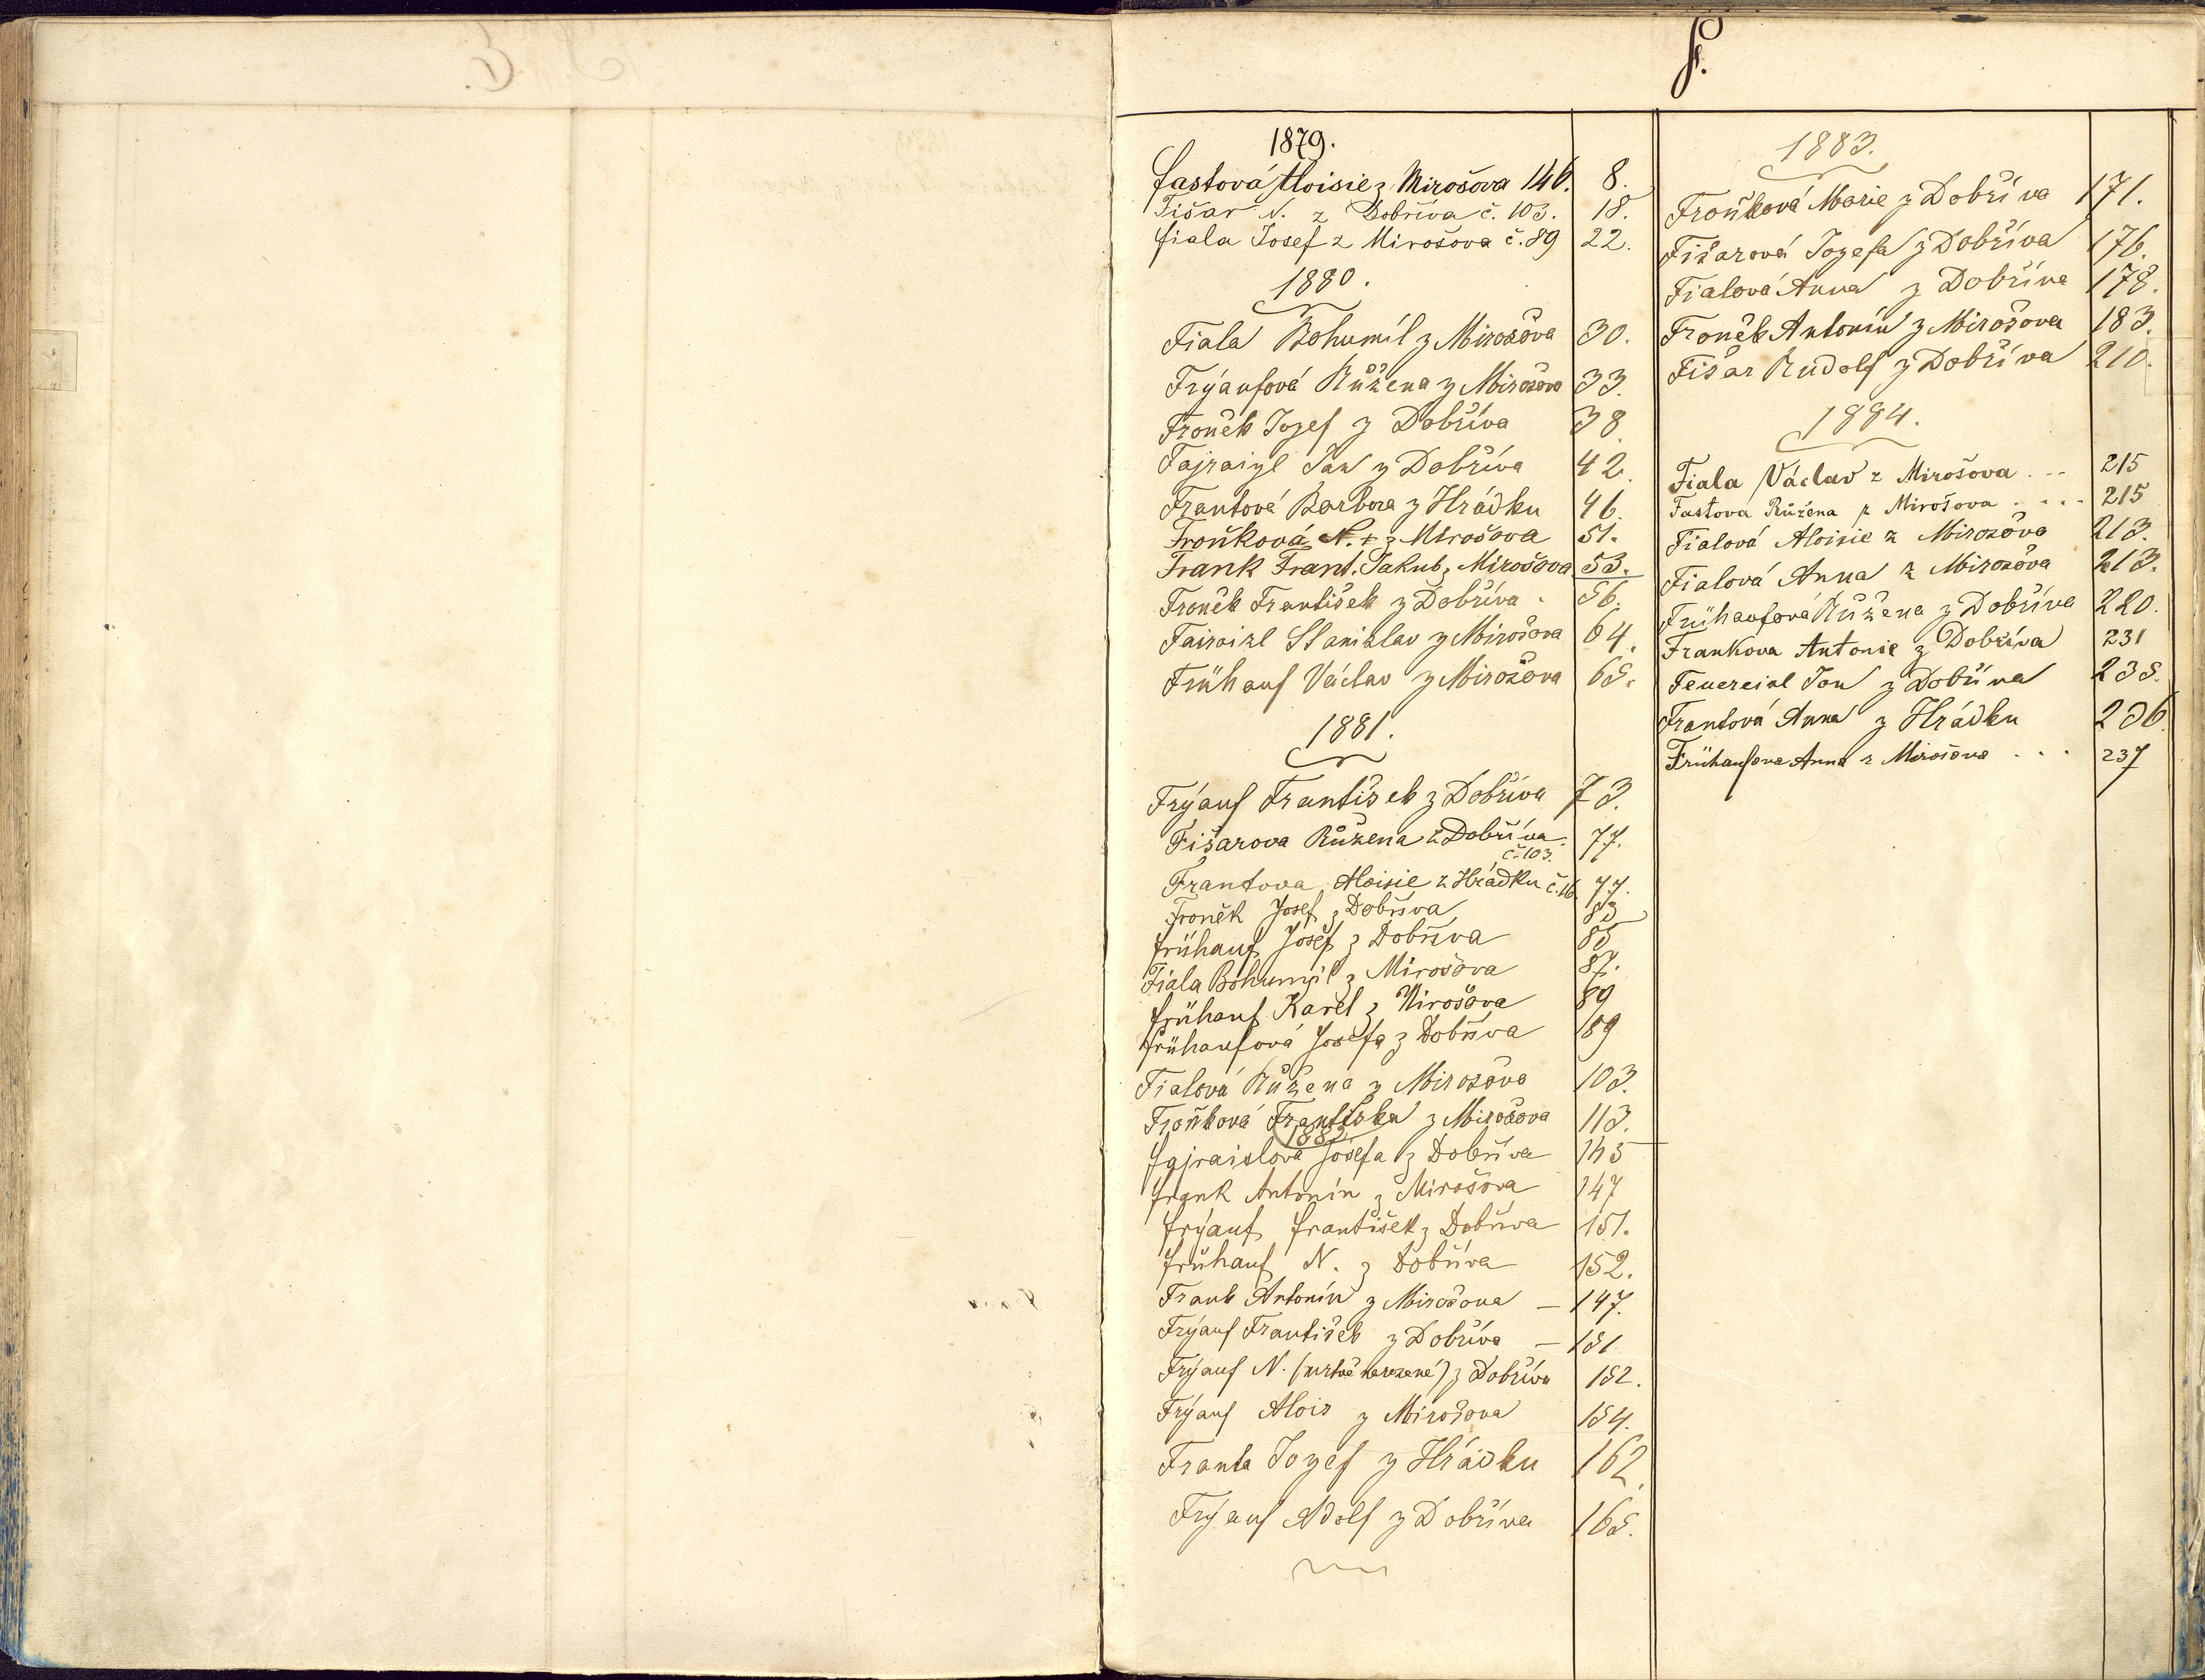 F.
1879.
Fastová Aloisie z Mirošova 146. 8.
Fišar N. z Dobříva č. 103. 18.
Fiala Josef z Mirošova č. 89 22.
1880.
Fiala Bohumil z Mirošova 30.
Frýaufová Růžena z Mirošova 33.
Froněk Josef z Dobříva 38.
Fajraizl Jan z Dobříva 42.
Frantová Barbora z Hrádku 46.
Froňková N. z Mirošova 51.
Frank Frant. Jakub z Mirošova 53.
Froněk František z Dobříva 56.
Fairaizl Stanislav z Mirošova 64.
Frühauf Václav z Mirošova 65.
1881.
Frýauf František z Dobříva 73.
Fišarova Růžena z Dobříva 77.
č. 103.
Frantova Aloisie z Hrádku č. 16 77.
Froněk Josef z Dobříva 83
Frühauf Josef z Dobříva 85
Fiala Bohumil z Mirošova 87.
Frühauf Karel z Mirošova 89
Frühaufová Josefa z Dobříva 89
Fialová Růžena z Mirošova 103.
Froňková Františka z Mirošova 113.
1882
Fajraislová Josefa z Dobříva 145
Frank Antonín z Mirošova 147
Frýauf František z Dobříva 151.
Frühauf N. z Dobříva 152.
Frank Antonín z Mirošova — 147.
Frýauf František z Dobříva — 151
Frýauf N. (mrtvě narozené) z Dobříva 152.
Frýauf Alois z Mirošova 154.
Franta Josef z Hrádku 162.
Frýauf Adolf z Dobříva 165.
1883.
Froňková Marie z Dobříva 171.
Fišarová Josefa z Dobříva 176.
Fialová Anna z Dobříva 178.
Froněk Antonín z Mirošova 183.
Fišar Rudolf z Dobříva 210.
1884.
Fiala Václav z Mirošova ... 215
Fastova Růžena z Mirošova .... 215
Fialová Aloisie z Mirošova 213.
Fialová Anna z Mirošova 213.
Frühaufová Růžena z Dobříva 220.
Frankova Antonie z Dobříva 231
Feuereisl Jan z Dobříva 235.
Frantová Anna z Hrádku 236
Frühaufova Anna z Mirošova ... 237